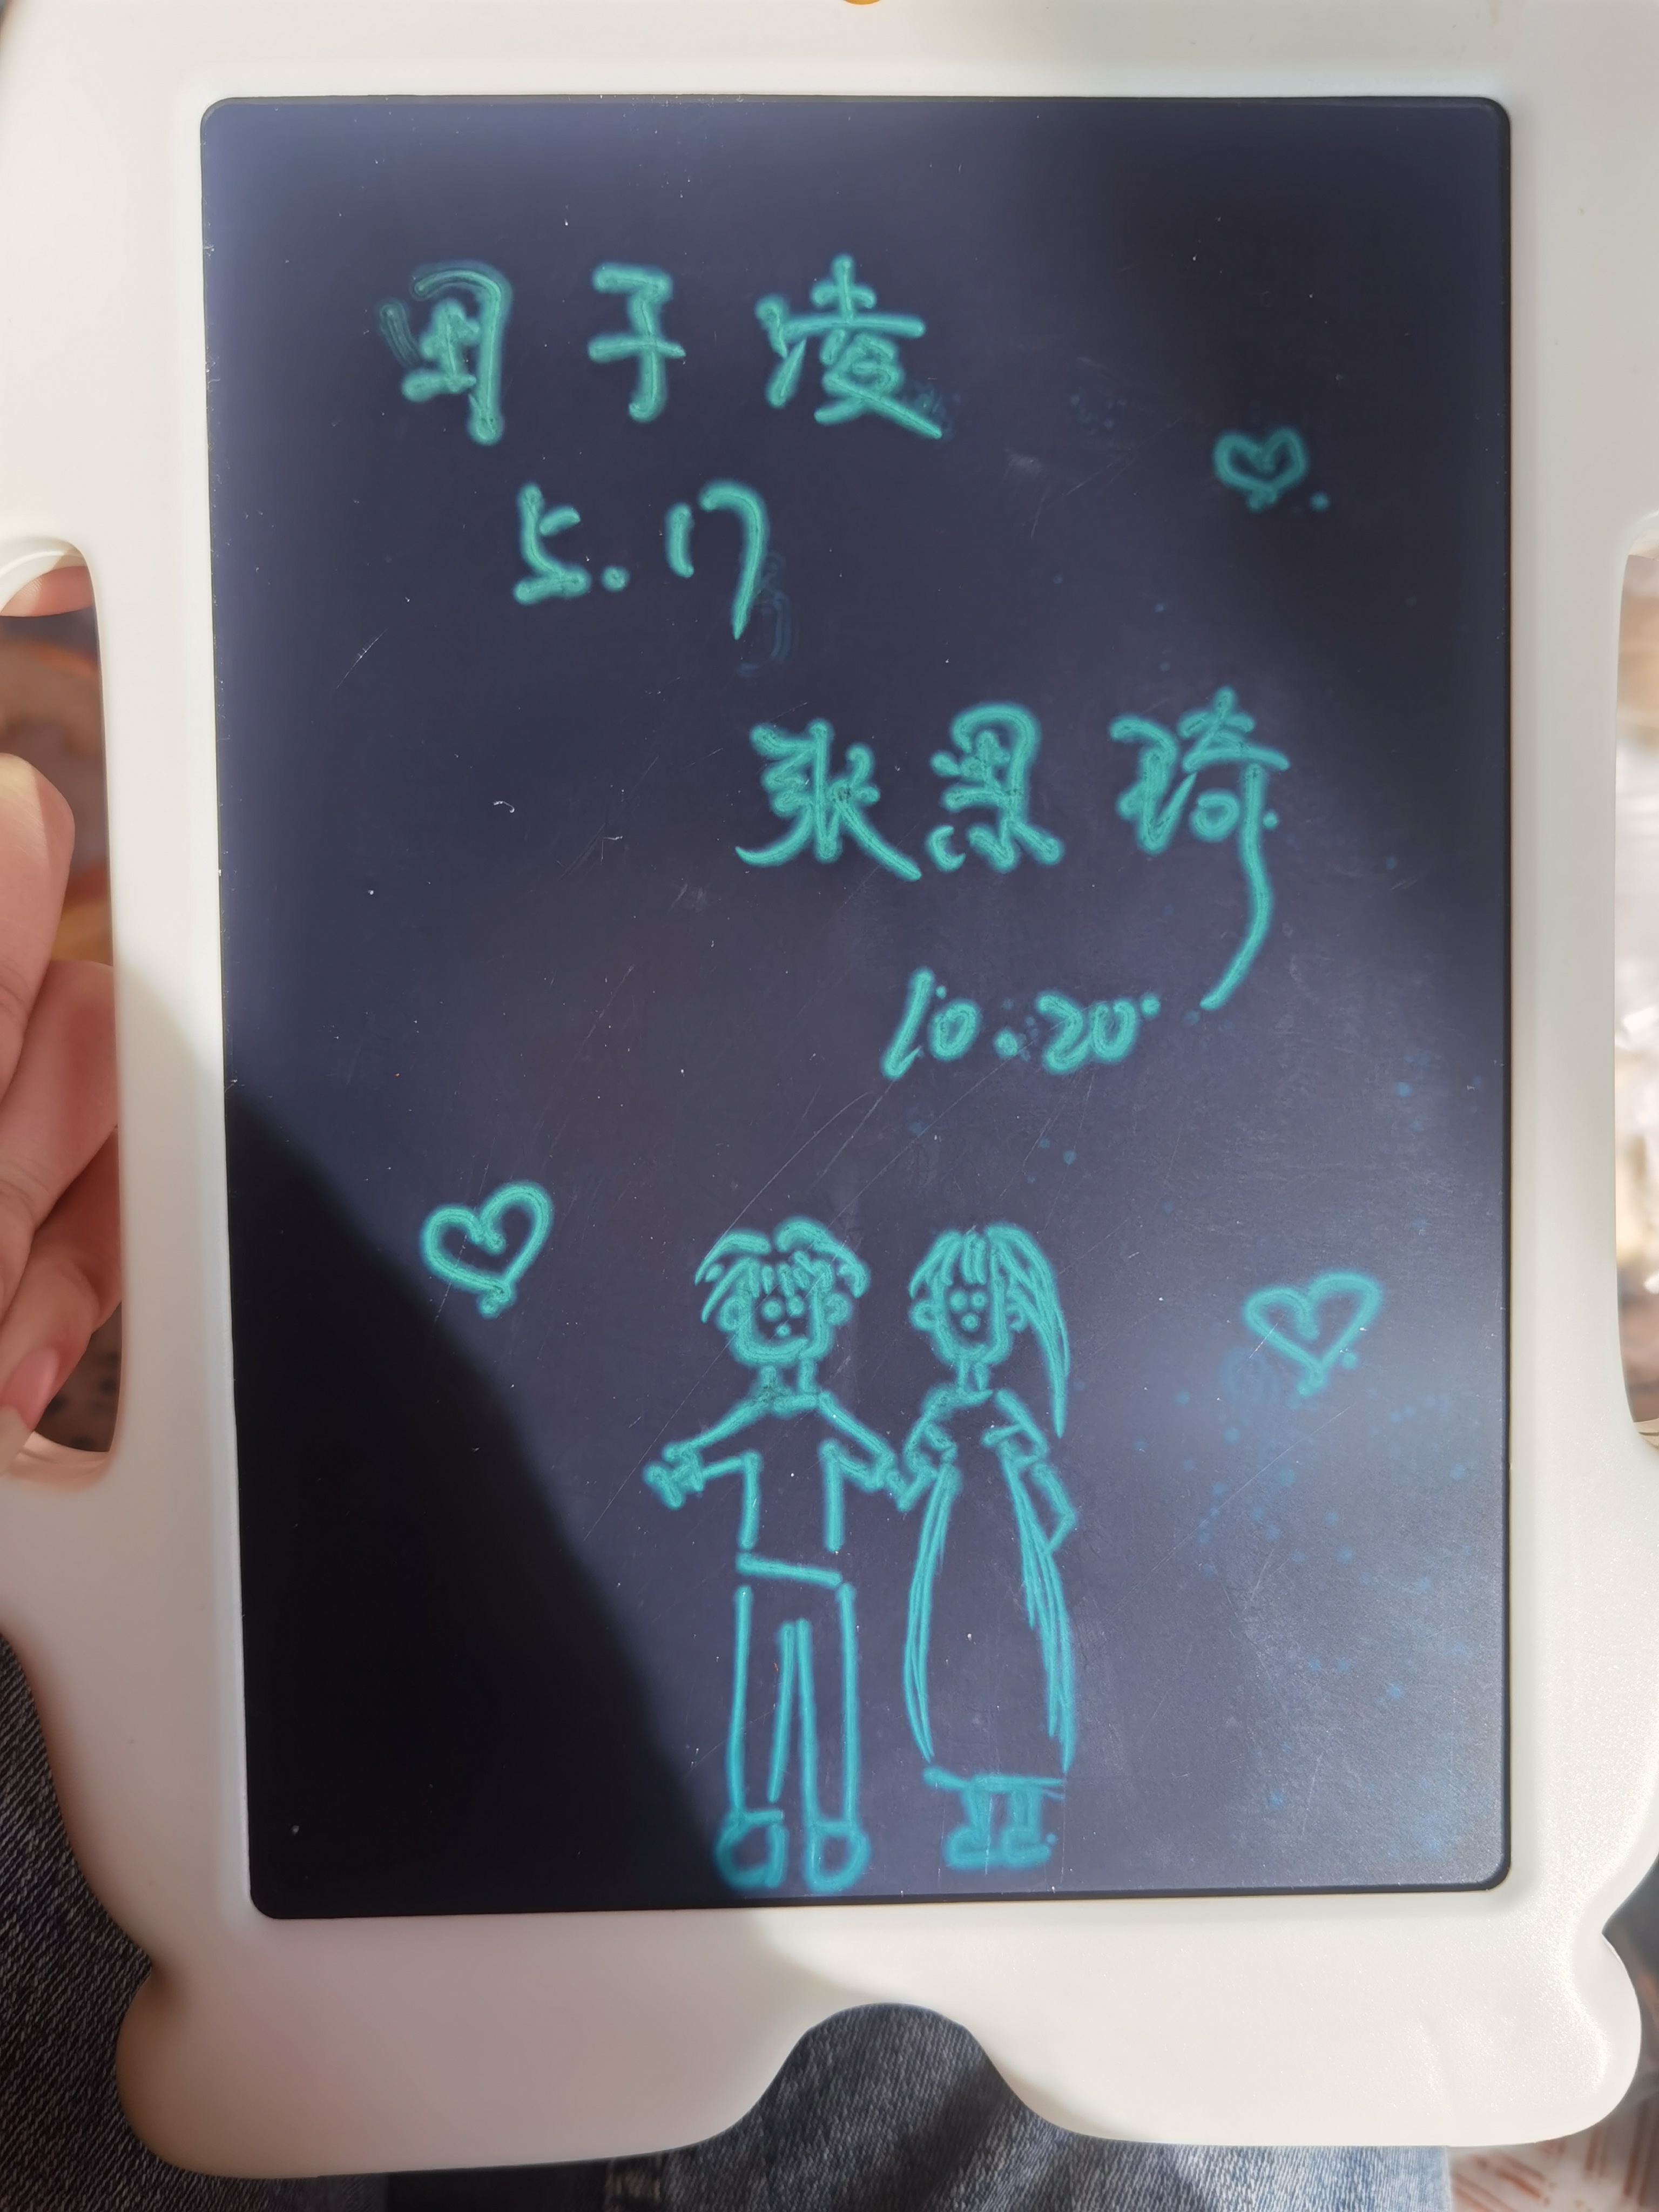 周子凌
5.17
张思琦
10.20